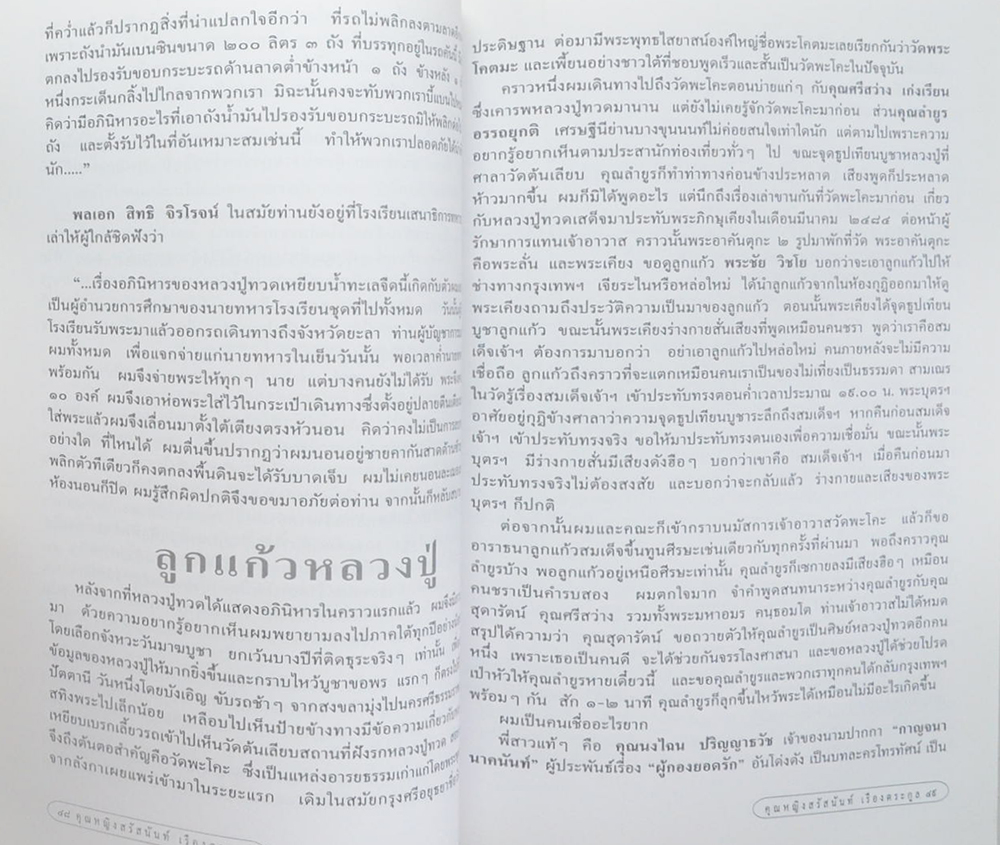 ที่คว่ำแล้วก็ปรากฏสิ่งที่น่าแปลกใจอีกว่า ที่รถไม่พลิกลงตามลาด
เพราะถังน้ำมันเบนซินขนาด ๒๐๐ ลิตร ๓ ถัง ที่บรรทุกอยู่ในรถคันนี้
ตกลงไปรองรับขอบกระบะรถด้านลาดต่ำข้างหน้า ๑ ถัง ข้างหลัง ๑
หนึ่งกระเด็นกลิ้งไปไกลจากพวกเรา มิฉะนั้นคงจะทับพวกเราบี้แบน
คิดว่ามีอภินิหารอะไรที่เอาถังน้ำมันไปรองรับขอบกระบะรถมิให้พลิก
ถัง และตั้งรับไว้ในที่อันเหมาะสมเช่นนี้ ทำให้พวกเราปลอดภัยได้
นัก.....”
พลเอก สิทธิ จิรโรจน์ ในสมัยท่านยังอยู่ที่โรงเรียนเสนาธิการทหาร
เล่าให้ผู้ใกล้ชิดฟังว่า
“...เรื่องอภินิหารของหลวงปู่ทวดเหยียบน้ำทะเลจืดนี้เกิดกับตัว
เป็นผู้อำนวยการศึกษาของนายทหารโรงเรียนชุดที่ไปทั้งหมด วันนั้น
โรงเรียนรับพระมาแล้วออกรถเดินทางถึงจังหวัดยะลา ท่านผู้บัญชาการ
ผมทั้งหมด เพื่อแจกจ่ายแก่นายทหารในเย็นวันนั้น พอเวลาค่ำนายทหาร
พร้อมกัน ผมจึงจ่ายพระให้ทุกๆ นาย แต่บางคนยังไม่ได้รับ พระ
๑๐ องค์ ผมจึงเอาห่อพระใส่ไว้ในกระเป๋าเดินทางซึ่งตั้งอยู่ปลายตีนเตียง
ใส่พระแล้วผมจึงเลื่อนมาตั้งใต้เตียงตรงหัวนอน คิดว่าคงไม่เป็นการ
อย่างใด ที่ไหนได้ ผมตื่นขึ้นปรากฏว่าผมนอนอยู่ชายคากันสาดด้าน
พลิกตัวทีเดียวก็คงตกลงพื้นดินจะได้รับบาดเจ็บ ผมไม่เคยนอนละเมอ
ห้องนอนก็ปิด ผมรู้สึกผิดปกติจึงขอขมาอภัยต่อท่าน จากนั้นก็หลับ
ลูกแก้วหลวงปู่
หลังจากที่หลวงปู่ทวดได้แสดงอภินิหารในคราวแรกแล้ว ผมจึง
มา ด้วยความอยากรู้อยากเห็นผมพยายามลงไปภาคใต้ทุกปีอย่าง
โดยเลือกจังหวะวันมาฆบูชา ยกเว้นบางปีที่ติดธุระจริงๆ เท่านั้น
ข้อมูลของหลวงปู่ให้มากยิ่งขึ้นและกราบไหว้บูชาขอพร แรกๆ ก็ตรงไป
ปัตตานี วันหนึ่งโดยบังเอิญ ขับรถช้าๆ จากสงขลามุ่งไปนครศรีธรรมราช
สทิงพระไปเล็กน้อย เหลือบไปเห็นป้ายข้างทางมีข้อความเกี่ยวกับ
เหยียบเบรกเลี้ยวรถเข้าไปเห็นวัดต้นเลียบสถานที่ฝังรกหลวงปู่ทวด
จึงถึงต้นตอสำคัญคือวัดพะโคะ ซึ่งเป็นแหล่งอารยธรรมเก่าแก่โดยพระ
จากลังกาเผยแพร่เข้ามาในระยะแรก เดิมในสมัยกรุงศรีอยุธยา
๔๘ คุณหญิงสรัสนันท์
ประดิษฐาน ต่อมามีพระพุทธไสยาสน์องค์ใหญ่ชื่อพระโคตมะเลยเรียกกันว่าวัดพระ
โคตมะ และเพี้ยนอย่างชาวใต้ที่ชอบพูดเร็วและสั้นเป็นวัดพะโคะในปัจจุบัน
คราวหนึ่งผมเดินทางไปถึงวัดพะโคะตอนบ่ายแก่ๆ กับคุณศรีสว่าง เก่งเรียน
ซึ่งเคารพหลวงปู่ทวดมานาน แต่ยังไม่เคยรู้จักวัดพะโคะมาก่อน ส่วนคุณลำยูร
อรรถยุกติ เศรษฐีนีย่านบางขุนนนท์ไม่ค่อยสนใจเท่าใดนัก แต่ตามไปเพราะความ
อยากรู้อยากเห็นตามประสานักท่องเที่ยวทั่วๆ ไป ขณะจุดธูปเทียนบูชาหลวงปู่ที่
ศาลาวัดต้นเลียบ คุณลำยูรก็ทำท่าทางค่อนข้างประหลาด เสียงพูดก็ประหลาด
ห้าวมากขึ้น ผมก็มิได้พูดอะไร แต่นึกถึงเรื่องเล่าขานกันที่วัดพะโคะมาก่อน เกี่ยว
กับหลวงปู่ทวดเสด็จมาประทับพระภิกษุเคียงในเดือนมีนาคม ๒๔๘๔ ต่อหน้าผู้
รักษาการแทนเจ้าอาวาส คราวนั้นพระอาคันตุกะ ๒ รูปมาพักที่วัด พระอาคันตุกะ
คือพระลั่น และพระเคียง ขอดูลูกแก้ว พระชัย วิชโย บอกว่าจะเอาลูกแก้วไปให้
ช่างทางกรุงเทพฯ เจียระไนหรือหล่อใหม่ ได้นำลูกแก้วจากในห้องกุฏิออกมาให้ดู
พระเคียงถามถึงประวัติความเป็นมาของลูกแก้ว ตอนนั้นพระเคียงได้จุดธูปเทียน
บูชาลูกแก้ว ขณะนั้นพระเคียงร่างกายสั่นเสียงที่พูดเหมือนคนชรา พูดว่าเราคือสม
เด็จเจ้าฯ ต้องการมาบอกว่า อย่าเอาลูกแก้วไปหล่อใหม่ คนภายหลังจะไม่มีความ
เชื่อถือ ลูกแก้วถึงคราวที่จะแตกเหมือนคนเราเป็นของไม่เที่ยงเป็นธรรมดา สามเณร
ในวัดรู้เรื่องสมเด็จเจ้าฯ เข้าประทับทรงตอนค่ำเวลาประมาณ ๑๙.๐๐ น. พระบุตรฯ
อาศัยอยู่กุฏิข้างศาลาว่าความจุดธูปเทียนบูชาระลึกถึงสมเด็จฯ หากคืนก่อนสมเด็จ
เจ้าฯ เข้าประทับทรงจริง ขอให้มาประทับทรงตนเองเพื่อความเชื่อมั่น ขณะนั้นพระ
บุตรฯ มีร่างกายสั่นมีเสียงดังฮือๆ บอกว่าเขาคือ สมเด็จเจ้าฯ เมื่อคืนก่อนมา
ประทับทรงจริงไม่ต้องสงสัย และบอกว่าจะกลับแล้ว ร่างกายและเสียงของพระ
บุตรฯ ก็ปกติ
ต่อจากนั้นผมและคณะก็เข้ากราบนมัสการเจ้าอาวาสวัดพะโคะ แล้วก็ขอ
อาราธนาลูกแก้วสมเด็จขึ้นทูนศีรษะเช่นเดียวกับทุกครั้งที่ผ่านมา พอถึงคราวคุณ
ลำยูรบ้าง พอลูกแก้วอยู่เหนือศีรษะเท่านั้น คุณลำยูรก็เซกายลงมีเสียงฮือๆ เหมือน
คนชราเป็นคำรบสอง ผมตกใจมาก จำคำพูดสนทนาระหว่างคุณลำยูรกับคุณ
สุดารัตน์ คุณศรีสว่าง รวมทั้งพระมหาอมร คนธอมโต ท่านเจ้าอาวาสไม่ได้หมด
สรุปได้ความว่า คุณสุดารัตน์ ขอถวายตัวให้คุณลำยูรเป็นศิษย์หลวงปู่ทวดอีกคน
หนึ่ง เพราะเธอเป็นคนดี จะได้ช่วยกันจรรโลงศาสนา และขอหลวงปู่ได้ช่วยโปรด
เป่าหัวให้คุณลำยูรหายเดี๋ยวนี้ และขอคุณลำยูรและพวกเราทุกคนได้กลับกรุงเทพฯ
พร้อมๆ กัน สัก ๑-๒ นาที คุณลำยูรก็ลุกขึ้นไหว้พระได้เหมือนไม่มีอะไรเกิดขึ้น
ผมเป็นคนเชื่ออะไรยาก
พี่สาวแท้ๆ คือ คุณนงไฉน ปริญญาธวัช เจ้าของนามปากกา “กาญจนา
นาคนันท์” ผู้ประพันธ์เรื่อง “ผู้กองยอดรัก” อันโด่งดัง เป็นบทละครโทรทัศน์ เป็น
คุณหญิงสรัสนันท์ เรืองตระกูล ๔๙